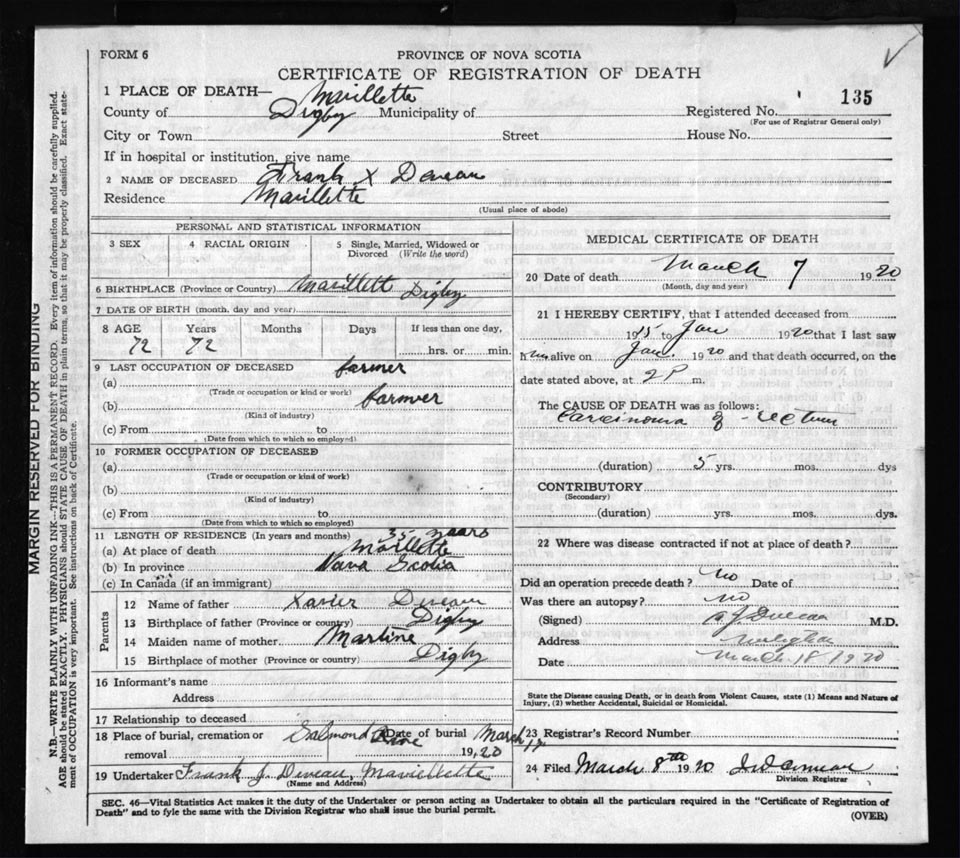 FORM 6
PROVINCE OF NOVA SCOTIA
CERTIFICATE OF REGISTRATION OF DEATH
1 PLACE OF DEATH— Mavillette
County of Digby Municipality of Registered No. 135
(For use of Registrar General only)
City or Town Street House No.
If in hospital or institution, give name
2 NAME OF DECEASED Frank X Deveau
Residence Mavillette
(Usual place of abode)
PERSONAL AND STATISTICAL INFORMATION
3 SEX 4 RACIAL ORIGIN 5 Single, Married, Widowed or Divorced (Write the word)
6 BIRTHPLACE (Province or Country) Mavillett Digby
7 DATE OF BIRTH (month, day and year)
8 AGE Years Months Days If less than one day,
72 72 hrs. or min.
9 LAST OCCUPATION OF DECEASED farmer
(a)
(Trade or occupation or kind of work)
(b) farmer
(Kind of industry)
(c) From to
(Date from which to which so employed)
10 FORMER OCCUPATION OF DECEASED
(a)
(Trade or occupation or kind of work)
(b)
(Kind of industry)
(c) From to
(Date from which to which so employed)
11 LENGTH OF RESIDENCE (In years and months) 35 years
(a) At place of death Mavillette
(b) In province Nova Scotia
(c) In Canada (if an immigrant)
Parents
12 Name of father Xavier Deveau
13 Birthplace of father (Province or country) Digby
14 Maiden name of mother Martine
15 Birthplace of mother (Province or country) Digby
16 Informant's name
Address
17 Relationship to deceased
18 Place of burial, cremation or removal Salmond River Date of burial March 1920
19 Undertaker Frank J. Deveau, Maviellette
(Name and Address)
MEDICAL CERTIFICATE OF DEATH
20 Date of death March 7 1920
(Month, day and year)
21 I HEREBY CERTIFY, that I attended deceased from
1915 to Jan 1920 that I last saw
him alive on Jan. 1920 and that death occurred, on the
date stated above, at 2 P m.
The CAUSE OF DEATH was as follows:
Carcinoma of rectum
(duration) 5 yrs. mos. dys
CONTRIBUTORY
(Secondary)
(duration) yrs. mos. dys.
22 Where was disease contracted if not at place of death?
Did an operation precede death? No Date of
Was there an autopsy? No
(Signed) Deveau M.D.
Address
Date March 18 1920
State the Disease causing Death, or in death from Violent Causes, state (1) Means and Nature of
Injury, (2) whether Accidental, Suicidal or Homicidal.
23 Registrar's Record Number
24 Filed March 8th 1920
Division Registrar
SEC. 46—Vital Statistics Act makes it the duty of the Undertaker or person acting as Undertaker to obtain all the particulars required in the "Certificate of Registration of
Death" and to fyle the same with the Division Registrar who shall issue the burial permit.
(OVER)
MARGIN RESERVED FOR BINDING
N.B.—WRITE PLAINLY WITH UNFADING INK—THIS IS A PERMANENT RECORD. Every item of information should be carefully supplied.
AGE should be stated EXACTLY. PHYSICIANS should STATE CAUSE OF DEATH in plain terms, so that it may be properly classified. Exact state-
ment of OCCUPATION is very important. See instructions on back of Certificate.